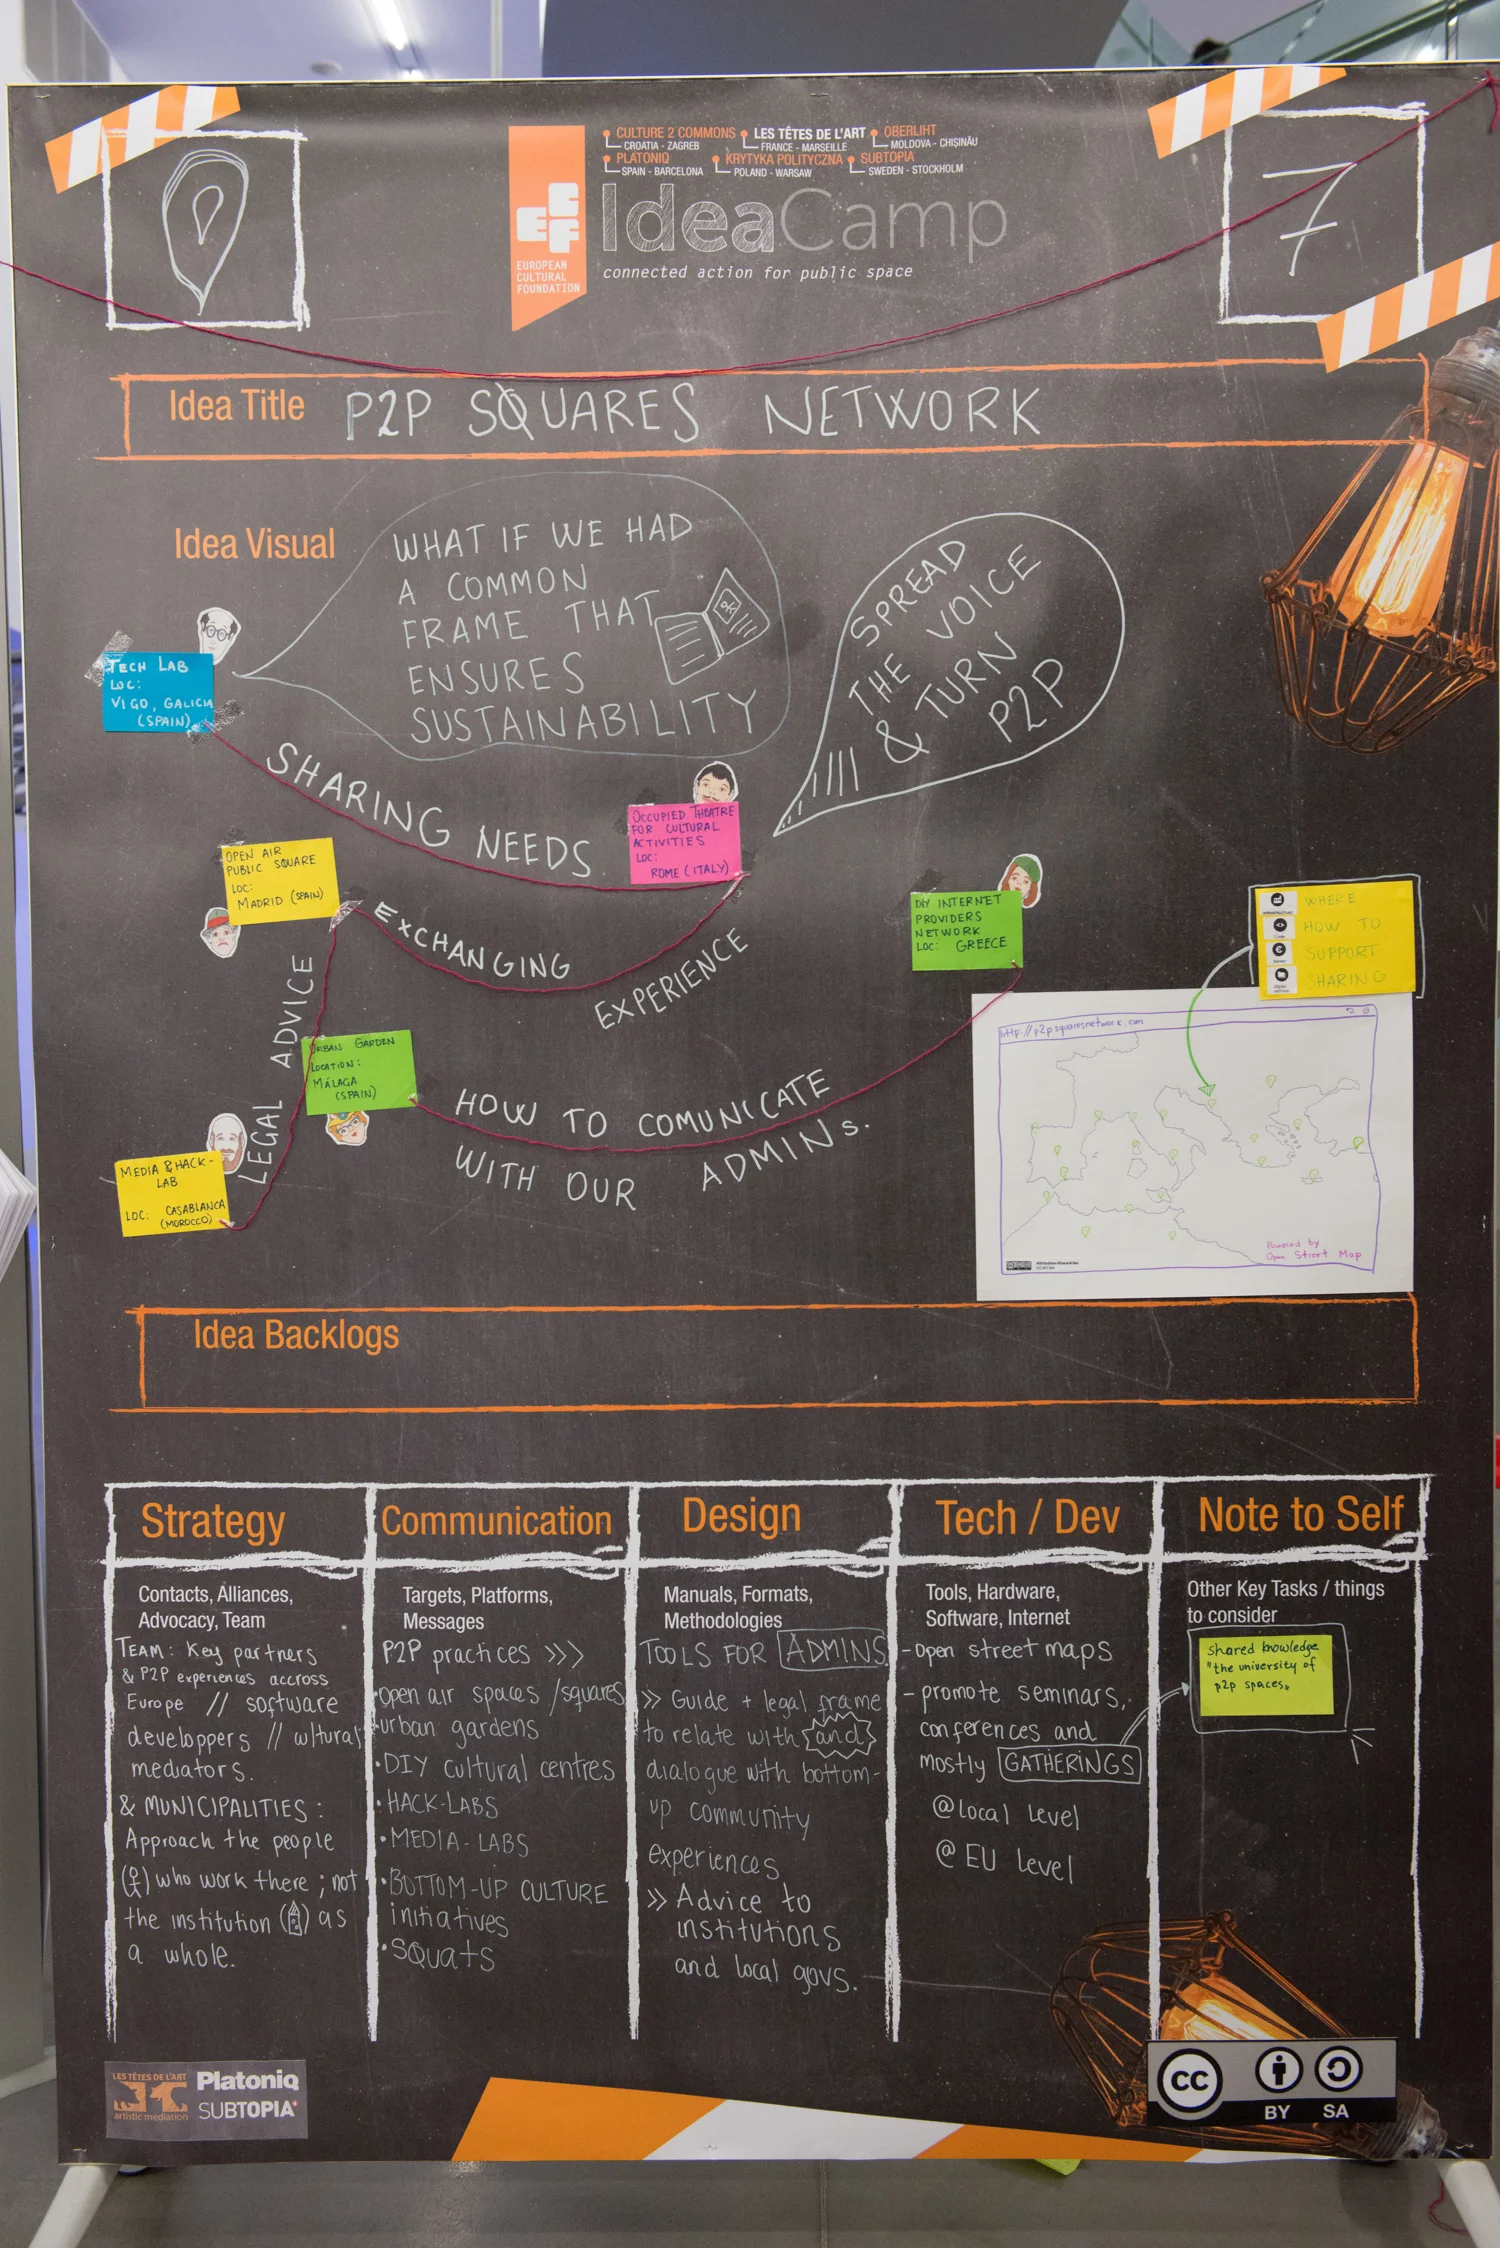 CULTURE 2 COMMONS
CROATIA - ZAGREB
LES TÊTES DE L'ART
FRANCE - MARSEILLE
OBERLIHT
MOLDOVA - CHIȘINĂU
PLATONIQ
SPAIN - BARCELONA
KRYTYKA POLITYCZNA
POLAND - WARSAW
SUBTOPIA
SWEDEN - STOCKHOLM
ECF
EUROPEAN
CULTURAL
FOUNDATION
IdeaCamp
connected action for public space
7
Idea Title P2P SQUARES NETWORK
Idea Visual
WHAT IF WE HAD
A COMMON
FRAME THAT
ENSURES
SUSTAINABILITY
OK
SPREAD
THE VOICE
& TURN
P2P
TECH LAB
LOC:
VIGO, GALICIA
(SPAIN)
SHARING NEEDS
OCCUPIED THEATRE
FOR CULTURAL
ACTIVITIES
LOC:
ROME (ITALY)
OPEN AIR
PUBLIC SQUARE
LOC:
MADRID (SPAIN)
EXCHANGING
EXPERIENCE
DIY INTERNET
PROVIDERS
NETWORK
LOC: GREECE
WHERE
HOW TO
SUPPORT
SHARING
LEGAL ADVICE
URBAN GARDEN
LOCATION:
MÁLAGA
(SPAIN)
HOW TO COMUNICATE
WITH OUR ADMINs.
MEDIA & HACK-
LAB
LOC: CASABLANCA
(MOROCCO)
http://p2psquaresnetwork.com
Powered by
Open Street Map
Idea Backlogs
Strategy
Contacts, Alliances,
Advocacy, Team
TEAM: Key partners
& P2P experiences accross
Europe // software
developpers // cultural
mediators.
& MUNICIPALITIES:
Approach the people
( ) who work there ; not
the institution ( ) as
a whole.
Communication
Targets, Platforms,
Messages
P2P practices >>>
·Open air spaces /squares
·urban gardens
·DIY cultural centres
·HACK-LABS
·MEDIA-LABS
·BOTTOM-UP CULTURE
initiatives
·SQUATS
Design
Manuals, Formats,
Methodologies
TOOLS FOR ADMINS
>> Guide + legal frame
to relate with and
dialogue with bottom-
up community
experiences
>> Advice to
institutions
and local govs.
Tech / Dev
Tools, Hardware,
Software, Internet
- Open street maps
- promote seminars,
conferences and
mostly GATHERINGS
@Local Level
@ EU level
Note to Self
Other Key Tasks / things
to consider
shared knowledge
"the university of
p2p spaces"
LES TÊTES DE L'ART
artistic mediation
Platoniq
SUBTOPIA
CC
BY SA